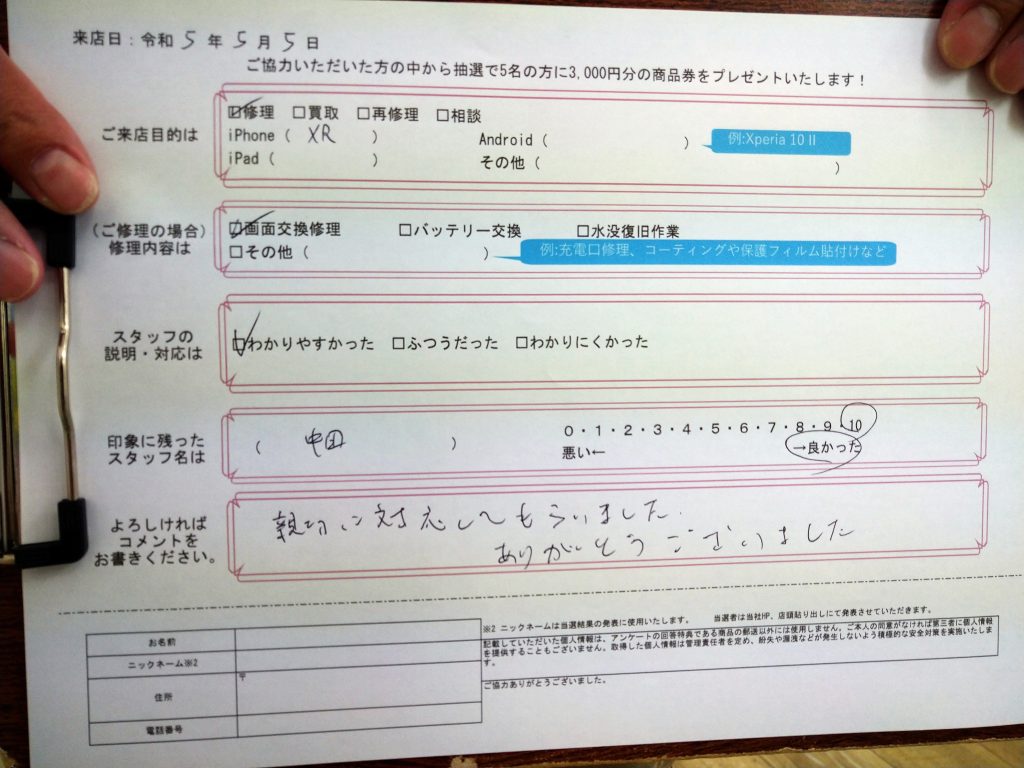 来店日：令和 5 年 5 月 5 日
ご協力いただいた方の中から抽選で5名の方に3,000円分の商品券をプレゼントいたします！
ご来店目的は
☑修理 □買取 □再修理 □相談
iPhone（ XR ） Android（ ） 例:Xperia 10 II
iPad（ ） その他（ ）
（ご修理の場合）
修理内容は
☑画面交換修理 □バッテリー交換 □水没復旧作業
□その他（ ） 例:充電口修理、コーティングや保護フィルム貼付けなど
スタッフの
説明・対応は
☑わかりやすかった □ふつうだった □わかりにくかった
印象に残った
スタッフ名は
（ 中田 ） 0・1・2・3・4・5・6・7・8・9・10
悪い← →良かった
よろしければ
コメントを
お書きください。
親切に対応してもらいました.
ありがとうございました
お名前
ニックネーム※2
住所 〒
電話番号
※2 ニックネームは当選結果の発表に使用いたします。 当選者は当社HP、店頭貼り出しにて発表させていただきます。
記載していただいた個人情報は、アンケートの回答特典である商品の郵送以外には使用しません。ご本人の同意がなければ第三者に個人情報
を提供することもございません。取得した個人情報は管理責任者を定め、紛失や漏洩などが発生しないよう積極的な安全対策を実施いたしま
す。
ご協力ありがとうございました。